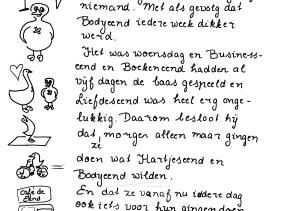 niemand. Met als gevolg dat
Bodyeend iedere week dikker
werd.
Het was woensdag en Business-
eend en Boekeneend hadden al
vijf dagen de baas gespeeld en
Liefdeseend was heel erg onge-
lukkig. Daarom besloot hij
dat morgen alleen maar gingen
ze
doen wat Hartjeseend en
Bodyeend wilden.
café de
Eend
En dat ze vanaf nu iedere dag
ook iets voor hun gingen doen